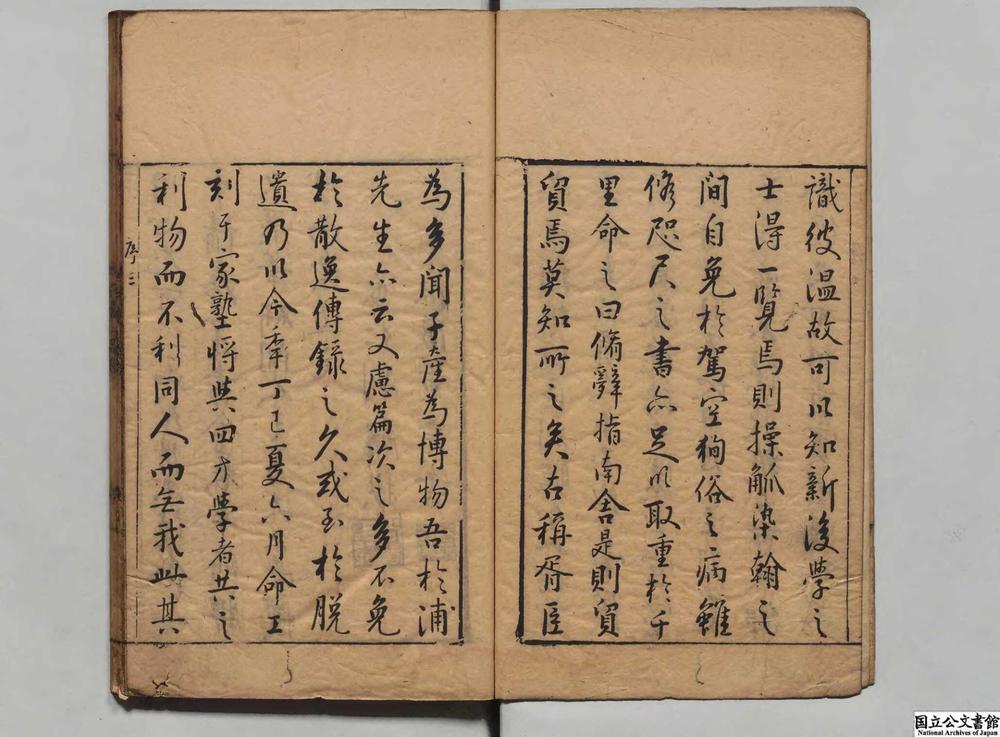 識彼温故可以知新後學之
士得一覽焉則操觚染翰之
間自免於駕空狥俗之病雖
修咫尺之書亦足以取重於千
里命之曰脩辭指南舍是則貿
貿焉莫知所之矣古稱胥臣
為多聞子產為博物吾於浦
先生亦云又慮篇次之多不免
於散逸傳錄之久或至於脱
遺乃以今年丁巳夏六月命工
刻于家塾將與四方學者共之
利物而不利同人而無我此其
序三
国立公文書館
National Archives of Japan